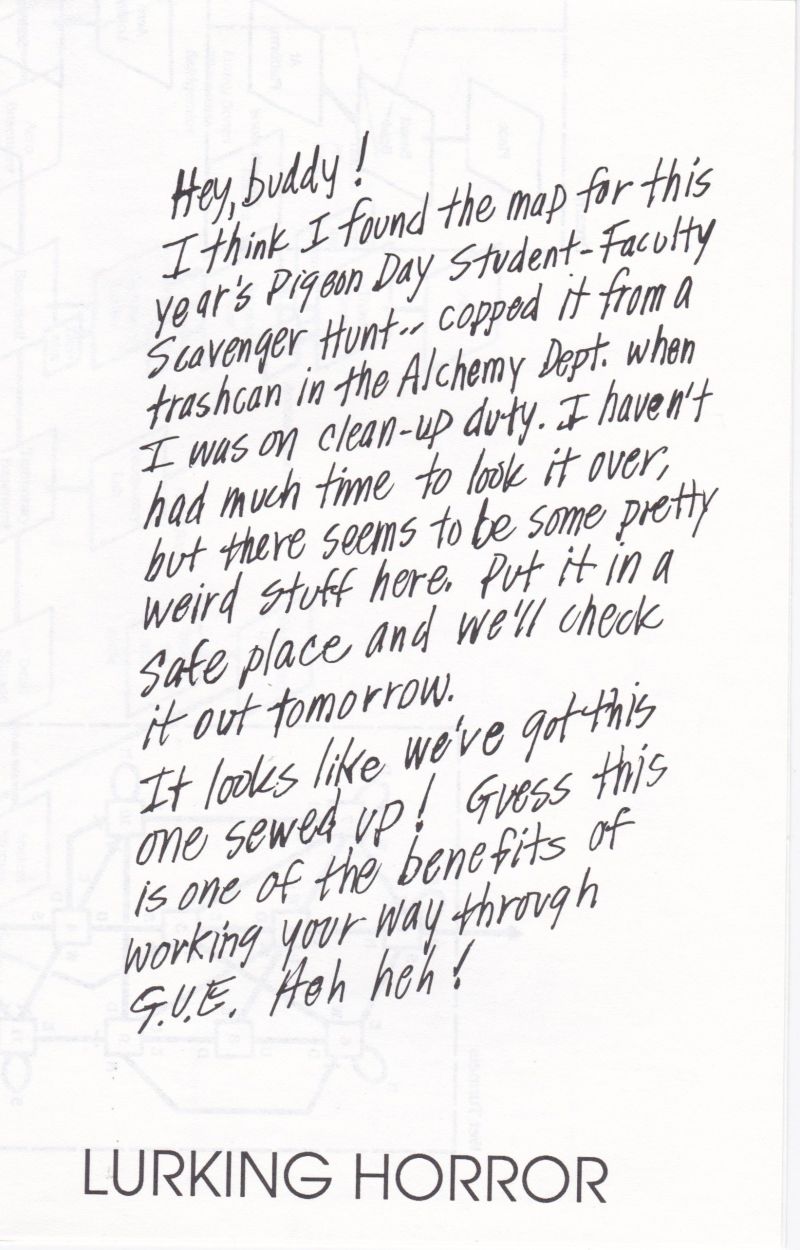 Hey, buddy!
I think I found the map for this
year's Pigeon Day Student-Faculty
Scavenger Hunt -- copped it from a
trashcan in the Alchemy Dept. when
I was on clean-up duty. I haven't
had much time to look it over,
but there seems to be some pretty
weird stuff here. Put it in a
safe place and we'll check
it out tomorrow.
It looks like we've got this
one sewed up! Guess this
is one of the benefits of
working your way through
G.U.E. Heh heh!
LURKING HORROR